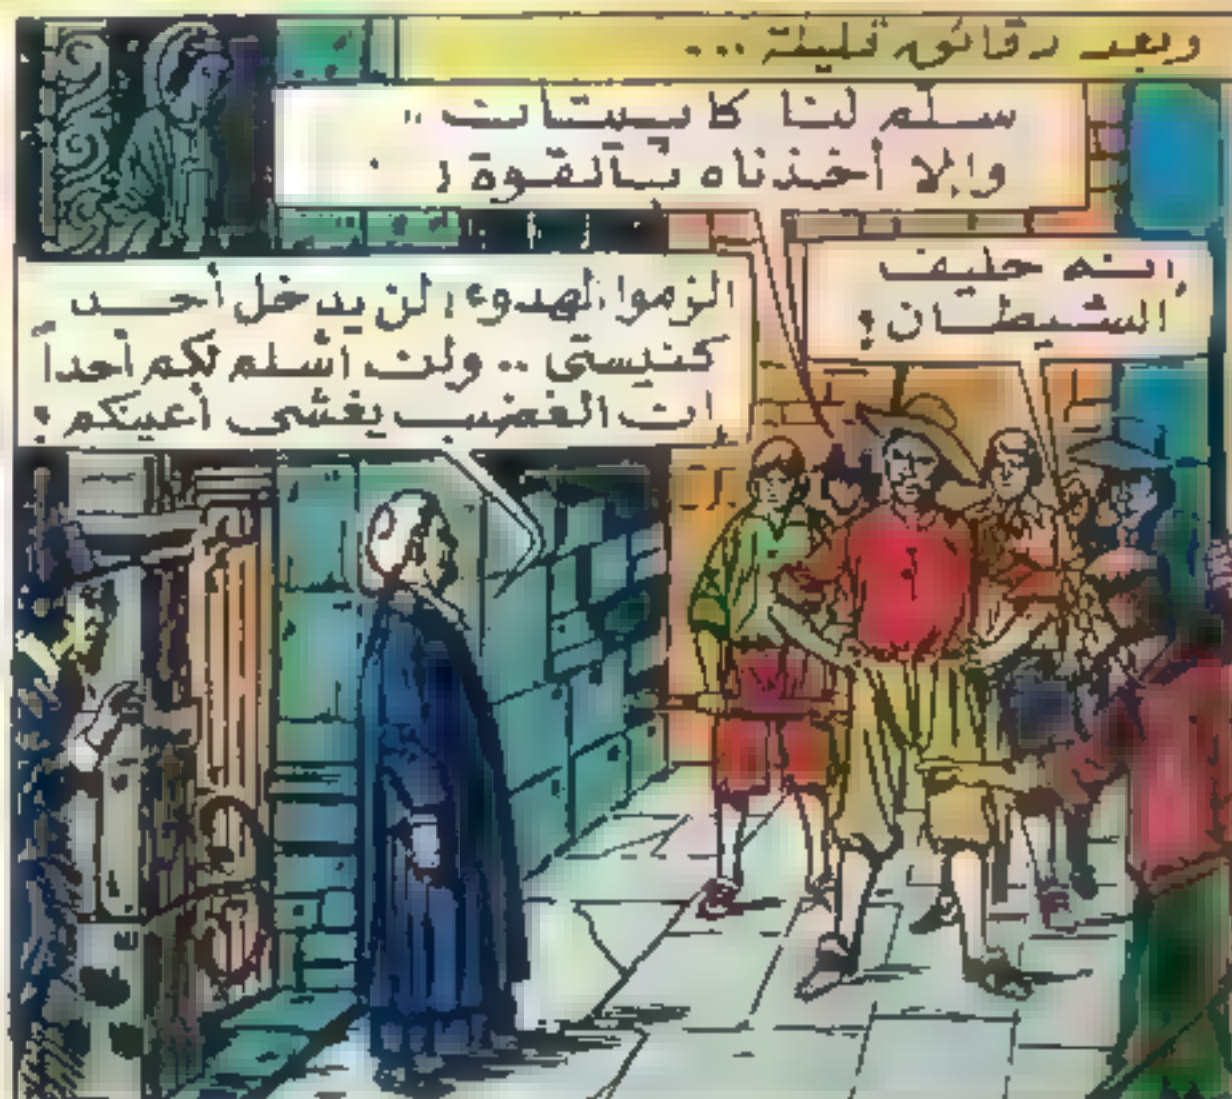 وبعد دقائق قليلة ...
سلّم لنا كابيتان ..
وإلا أخذناه بالقوة !
إنه حليف
الشيطان !
الزموا الهدوء ! لن يدخل أحد
كنيستي .. ولن أسلم لكم أحداً
إن الغضب يغشى أعينكم !